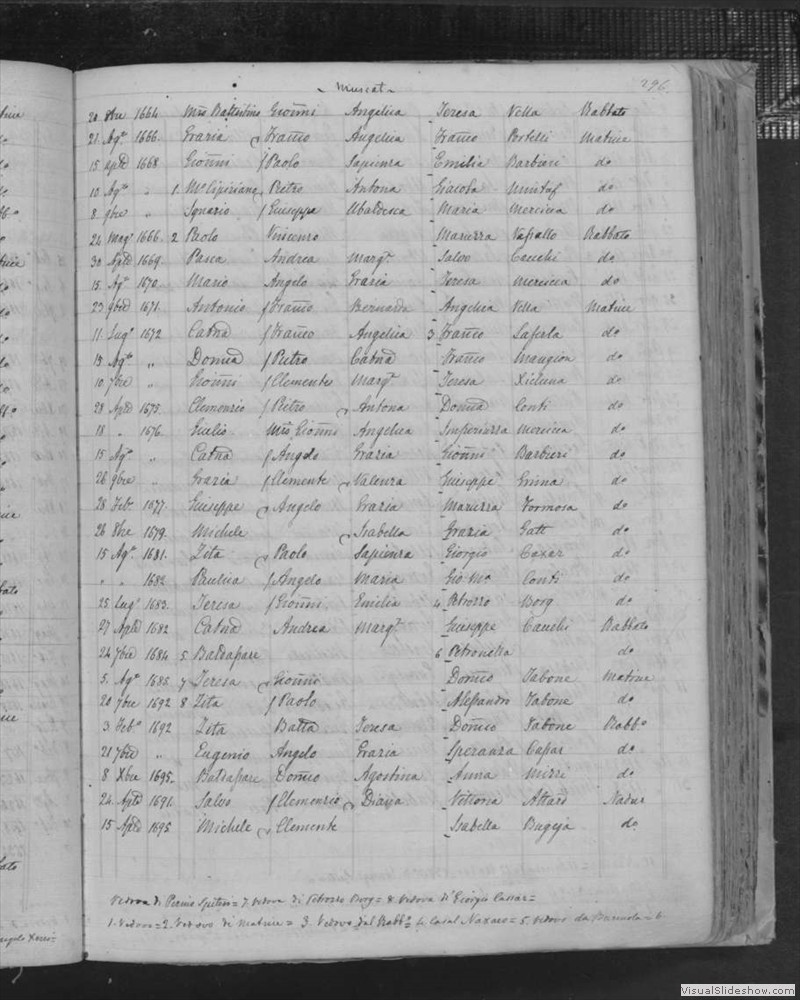 - Muscat - 296
20 8bre 1664 Mro Battistino Gioñni Angelica Teresa Vella Rabbato
21 Agto 1666. Grazia Frañco Angelica Frañco Portelli Matrice
15 Aple 1668 Gioñni f Paolo Sapienza Emilia Barbieri do
10 Agto " 1. Mro Pietro Antona do
8 9bre " Ignazio f Giuseppe Ubaldesca Maria Mercieca do
24 Magº 1666. 2 Paolo Vincenzo Maruzza Rabbato
30 Aple 1669. Pasca Andrea Margta Salvo Cauchi do
15. Agto 1670. Mario Angelo Grazia Teresa Mercieca do
23 9bre 1671. Antonio f Frañco Bernarda Angelica Vella Matrice
11. Lugº 1672 Catna f Frañco Angelica 3 Frañco do
15 Agto " Domca f Pietro Catna Frañco Mangion do
10 7bre " Gioñni f Clemente Margta Teresa Xicluna do
28 Aple 1675. Clemenzio f Pietro Antona Domca Conti do
18 " 1676. Giulio Mro Gioñni Angelica Imperiuzza Mercieca do
15 Agto " Catna f Angelo Grazia Gioñni Barbieri do
26 9bre " Grazia f Clemente Valenza Giuseppe do
28 Febo 1677. Giuseppe Angelo Grazia Maruzza Formosa do
26 8bre 1679. Michele Isabella Grazia Gatt do
15 Agto 1681. Zita Paolo Sapienza Giorgio do
" " 1682 Paulica f Angelo Maria Gio Ma Conti do
25 Lugº 1683. Teresa f Gioñni Emilia 4 Petruzzo Borg do
27 Aple 1682 Catna Andrea Margta Giuseppe Cauchi Rabbato
24 7bre 1684 5 Baldasare 6 Petronella do
5. Agto 1685 7 Teresa Gioñni Domco Tabone Matrice
20 7bre 1692 8 Zita f Paolo Alessandro Tabone do
3 Febo 1692 Zita Batta Teresa Domco Tabone Rabbo
21 7bre " Eugenio Angelo Grazia Speranza do
8 Xbre 1695. Baldasare Domco Agostina Anna Mizzi do
24. Aple 1691. Salvo f Clemenzio Diana Vittoria Attard Nadur
15 Aple 1695 Michele Clemente Isabella Bugeja do
Vedova di = 7. vedova di Petruzzo Borg = 8 Vedova di Giorgio Cassar =
1. Vedovo = 2. Vedovo di Matrice = 3. Vedovo dal Rabbo 4. Casal Naxaro = 5. Vedovo da = 6.